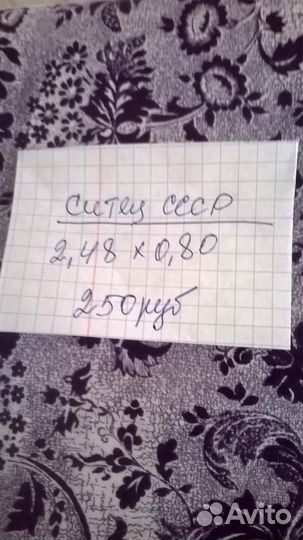 Ситец СССР
2,48 х 0,80
250 руб
Avito